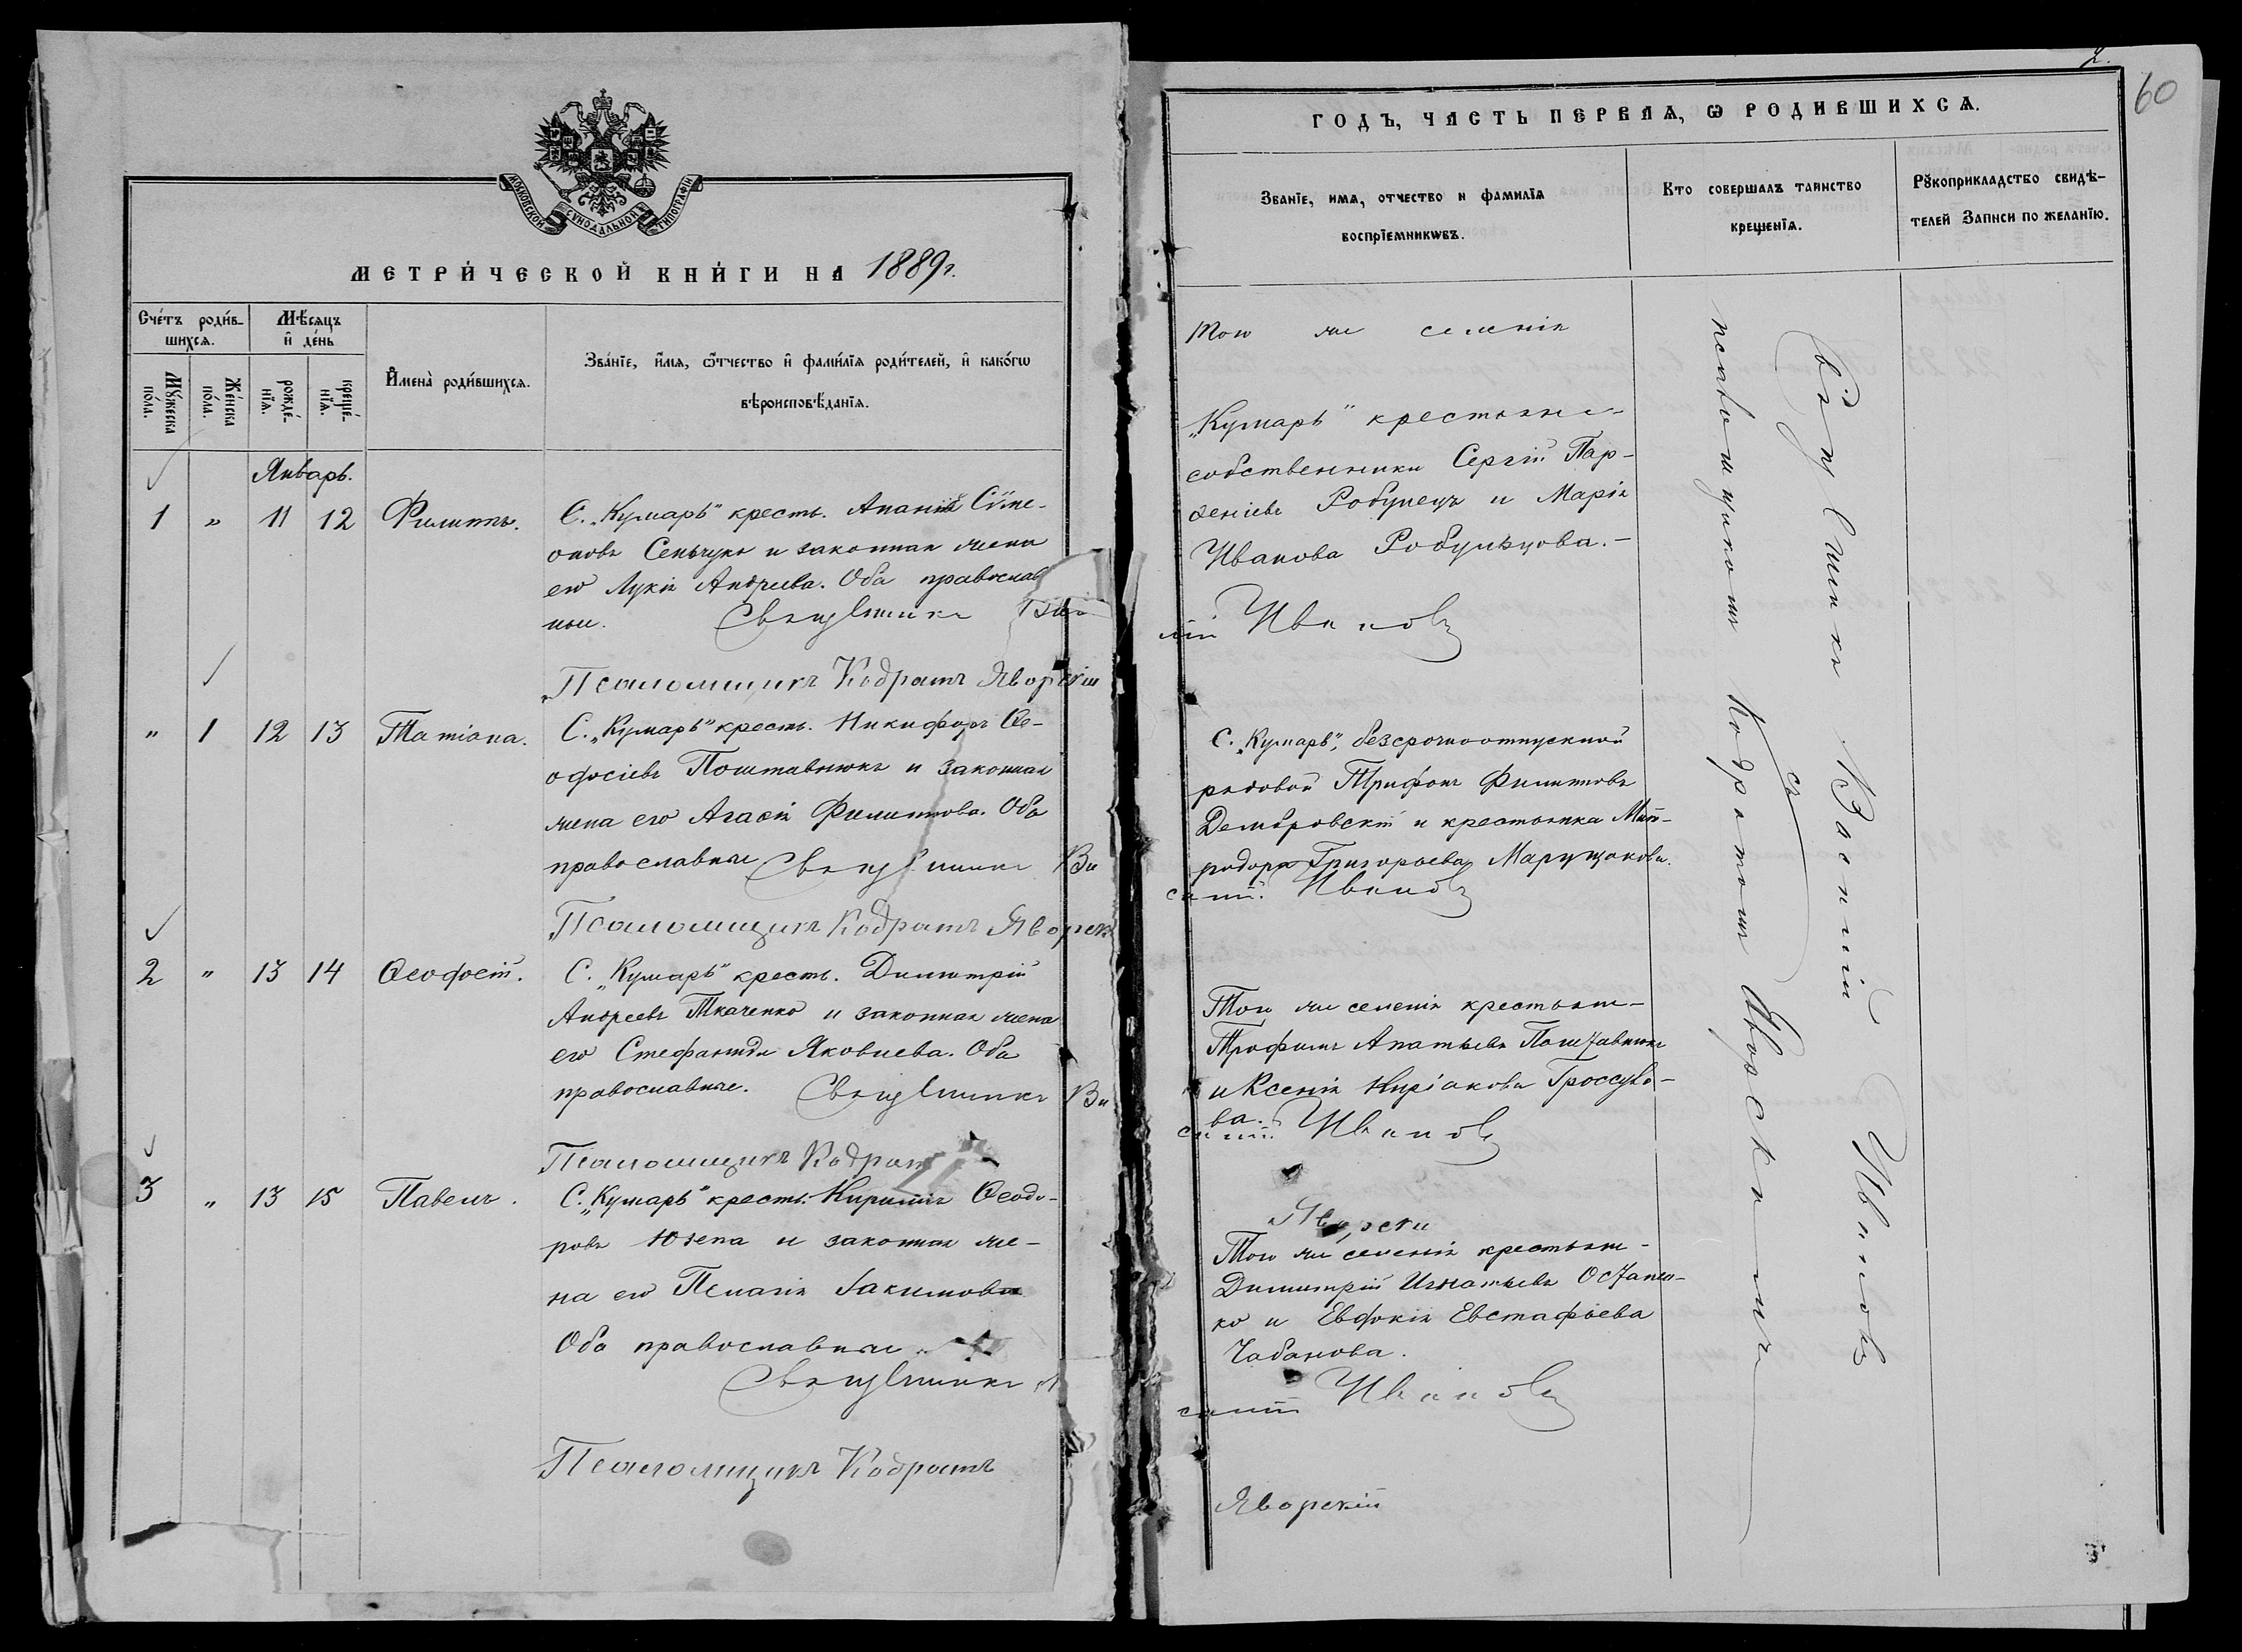 МОСКОВСКОЙ СѴНОДАЛЬНОЙ ТИПОГРАФІИ
МЕТРИ́ЧЕСКОЙ КНИ́ГИ НА 1889 г.
Сче́тъ роди́в-
шихсѧ.
Мѣ́сѧцъ
и҆ де́нь
Мꙋ́жеска
по́ла.
Же́нска
по́ла.
рожде́-
нїѧ.
креще́-
нїѧ.
И҆мена̀ роди́вшихсѧ.
Зва́нїе, и҆́мѧ, ѻ҆́тчество и҆ фами́лїѧ роди́телей, и҆ како́гѡ
вѣроисповѣ́данїѧ.
Январь.
1 " 11 12 Филиппъ.
С. „Кумары" кресть. Ананій Сѵме-
оновъ Сеньчукъ и законная жена
его Лукія Андреева. Оба православ
ные. Священникъ
Псаломщикъ Кодратъ Яворскій
" 1 12 13 Татіана.
С. „Кумары" кресть. Никифоръ Ѳе-
офосіевъ Поштавнюкъ и законная
жена его Агаѳія Филиппова. Оба
православные Священникъ Ва
Псаломщикъ Кодратъ Яворск
2 " 13 14 Ѳеофосій.
С. „Кумары" кресть. Димитрій
Андреевъ Ткаченко и законная жена
его Стефанида Яковлева. Оба
православные. Священникъ Ва
Псаломщикъ Кодратъ
3 " 13 15 Павелъ.
С. „Кумары" кресть. Кириллъ Ѳеодо-
ровъ Юзепа и законная же-
на его Пелагія Іакимова
Оба православные.
Священникъ
Псаломщикъ Кодратъ
2.
60
ГОДЪ, ЧАСТЬ ПЕРВАѦ, Ѡ РОДИВШИХСѦ.
Званїе, имѧ, отчество и фамилїѧ
воспрїемникѡвъ.
Кто совершалъ таинство
крещенїѧ.
Рꙋкоприкладство свидѣ-
телей Записи по желанїю.
Того же селенія
„Кумары" крестьяне-
собственники Сергій Пар-
ѳеніевъ Робулецъ и Марія
Иванова Робульцова.-
лій Ивановъ
С. „Кумары", безсрочноотпускной
рядовой Трифонъ Филипповъ
Домбровскій и крестьянка Мит-
родора Григорьева Марущакова.
силій. Ивановъ
Того же селенія крестьяне-
Трофимъ Апатьевъ Поштавнюкъ
и Ксенія Киріакова Гроссуло-
ва.
силій. Ивановъ
Яворскій
Того же селенія крестьяне-
Димитрій Игнатьевъ Остапен-
ко и Евдокія Евстафьева
Чабанова.
силій Ивановъ
Яворскій
Священникъ Василій Ивановъ
съ
псаломщикомъ Кодратомъ Яворскимъ